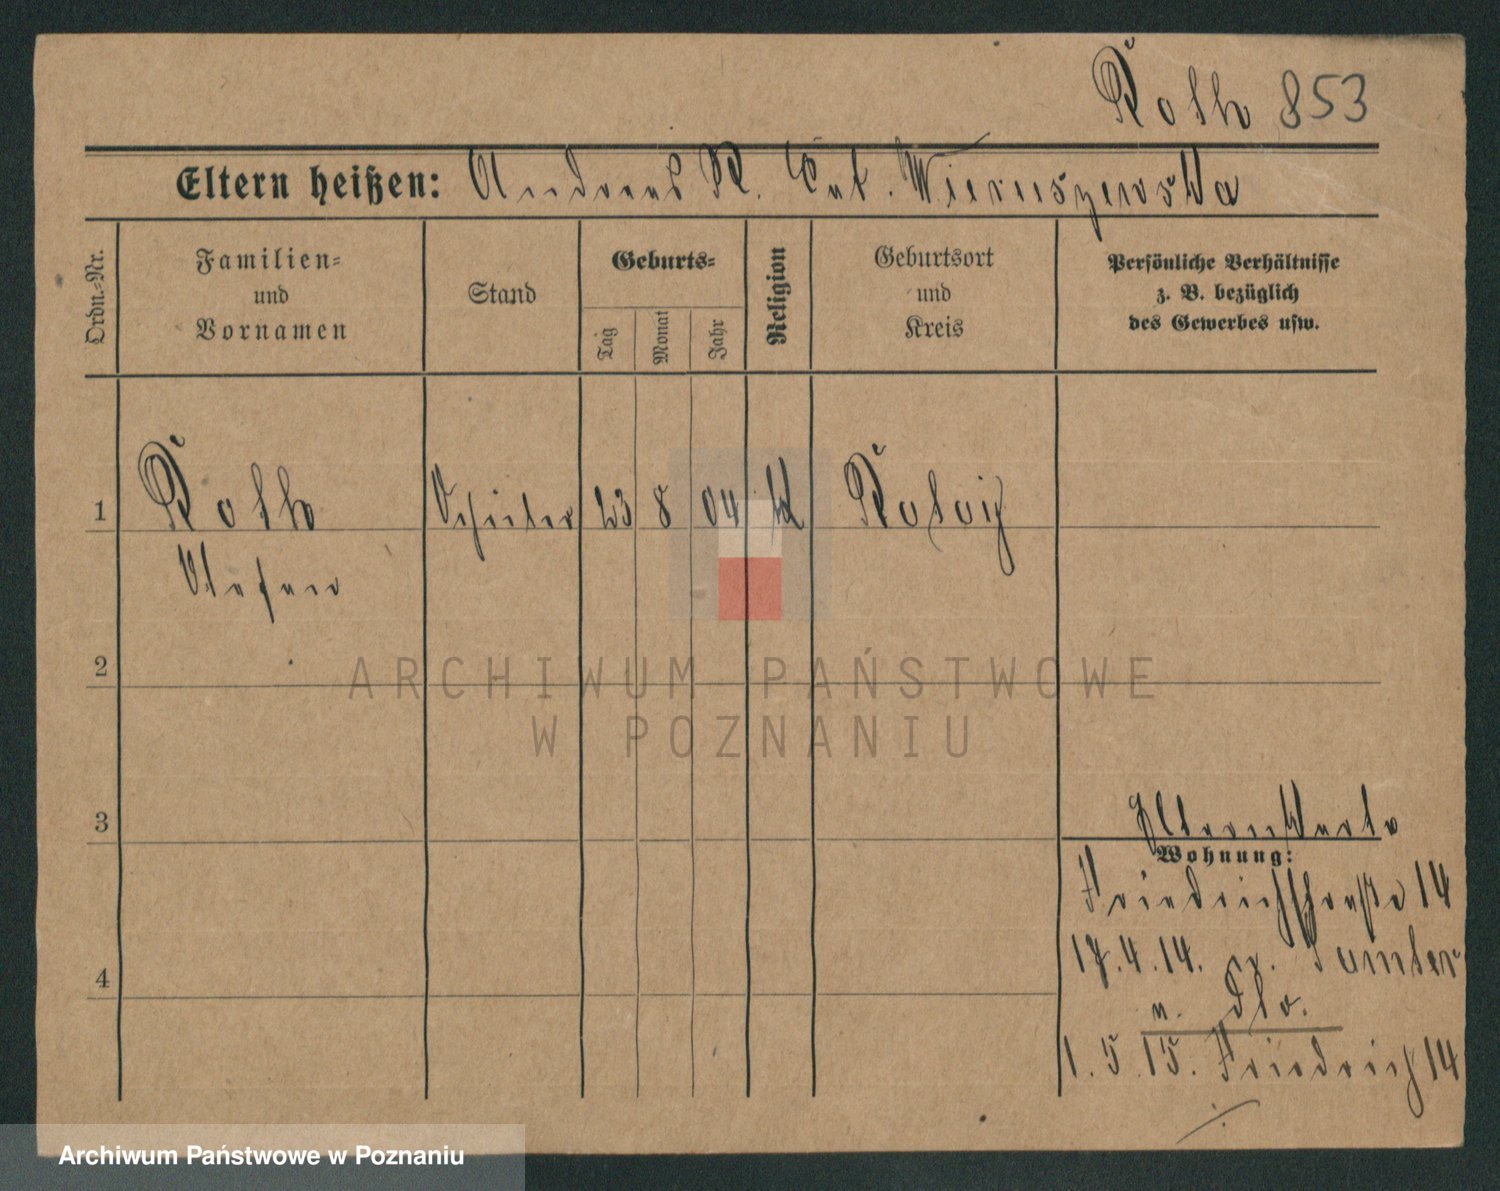 Roth 853
Eltern heißen: Andreas R. Cat. Wieruszewska
Ordn.-Nr.
Familien-
und
Vornamen
Stand
Geburts-
Tag
Monat
Jahr
Religion
Geburtsort
und
Kreis
Persönliche Verhältnisse
z. B. bezüglich
des Gewerbes usw.
1 Roth Schüler 23 8 04 k
Stefan
2
3
4
Elternkarte
Wohnung:
Friedrichstraße 14
17.4.14. Samter
u. Dto.
1.5.15. Friedrich 14
ARCHIWUM PAŃSTWOWE
W POZNANIU
Archiwum Państwowe w Poznaniu